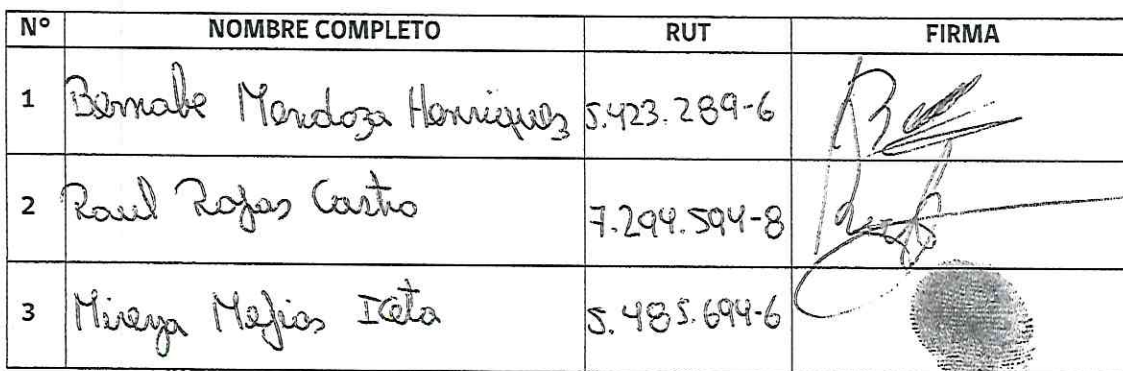 N° NOMBRE COMPLETO RUT FIRMA
1 Bernabe Mendoza Henriquez 5.423.289-6
2 Raul Rojas Castro 7.294.594-8
3 Mireya Mejias 5.485.694-6